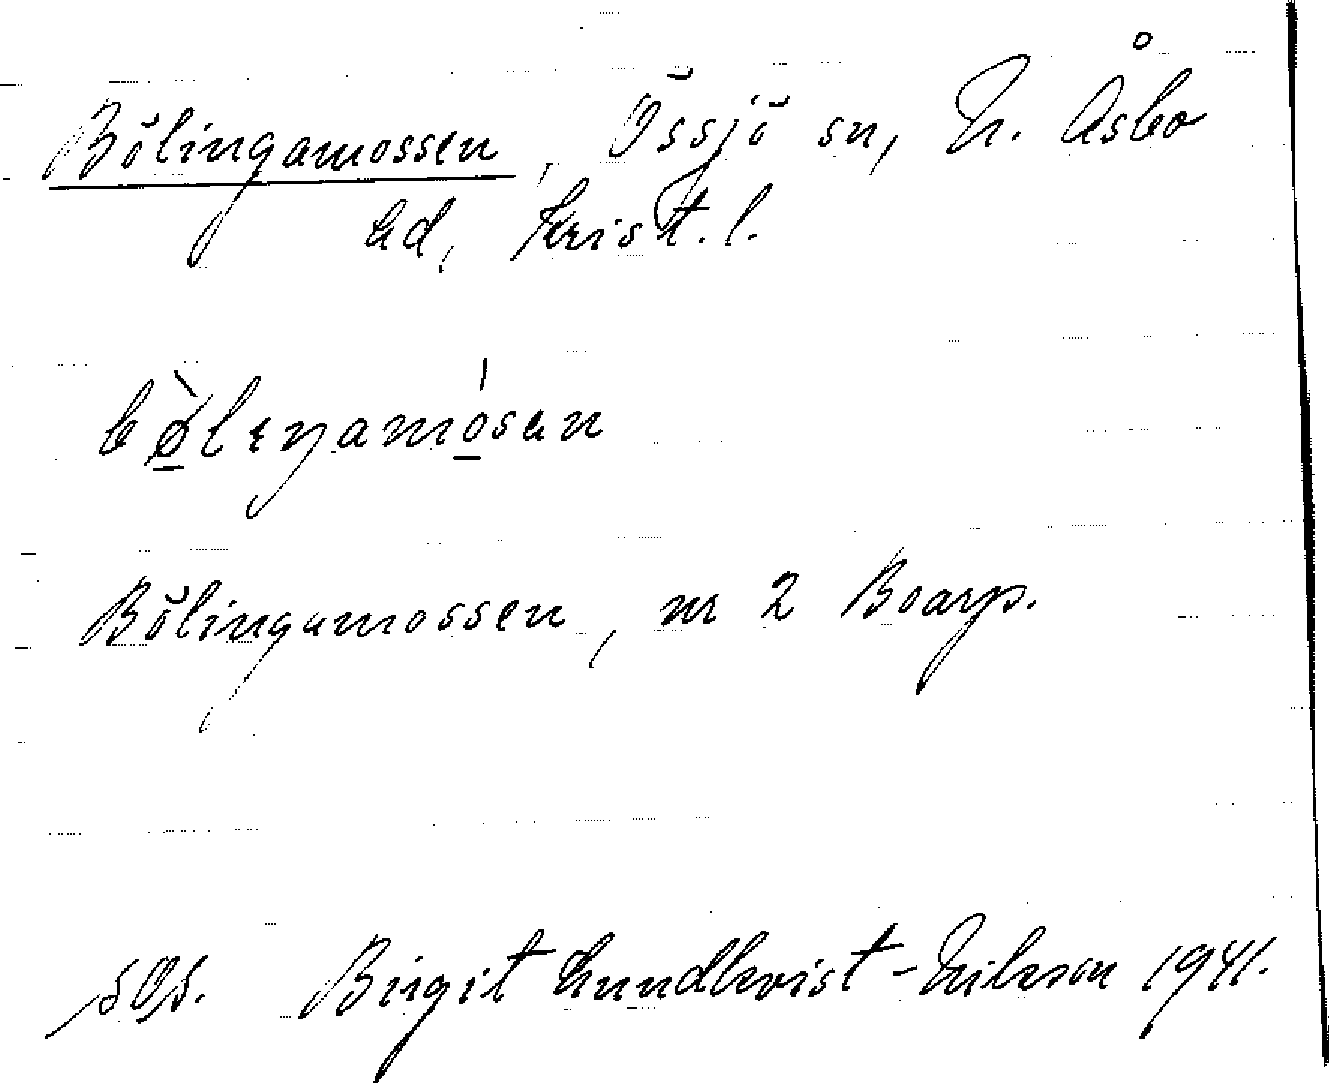 Bölingamossen, Össjö sn, N. Åsbo
hd, Krist. l.
bø̀lɪŋamósen
Bölingamossen, nr 2 Boarp.
Birgit Lundkvist-Nilsson 1941.